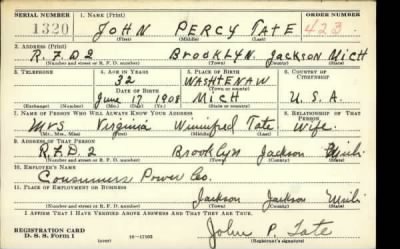 SERIAL NUMBER 1. NAME (Print) ORDER NUMBER
1320 JOHN PERCY TATE 423
(First) (Middle) (Last)
2. ADDRESS (Print)
R.F.D 2 BROOKLYN. JACKSON MICH
(Number and street or R. F. D. number) (Town) (County) (State)
3. TELEPHONE 4. AGE IN YEARS 5. PLACE OF BIRTH 6. COUNTRY OF CITIZENSHIP
32 WASHTENAW
DATE OF BIRTH (Town or county)
June 17 1908 MICH U.S.A.
(Exchange) (Number) (Mo.) (Day) (Yr.) (State or country)
7. NAME OF PERSON WHO WILL ALWAYS KNOW YOUR ADDRESS 8. RELATIONSHIP OF THAT PERSON
Mrs Virginia Winnifred Tate Wife.
(Mr., Mrs., Miss) (First) (Middle) (Last)
9. ADDRESS OF THAT PERSON
R.F.D. 2 Brooklyn Jackson Mich
(Number and street or R. F. D. number) (Town) (County) (State)
10. EMPLOYER'S NAME
Consumers Power Co.
11. PLACE OF EMPLOYMENT OR BUSINESS
Jackson Jackson Mich
(Number and street or R. F. D. number) (Town) (County) (State)
I AFFIRM THAT I HAVE VERIFIED ABOVE ANSWERS AND THAT THEY ARE TRUE.
REGISTRATION CARD John P. Tate
D. S. S. Form 1 16—17105 (Registrant's signature)